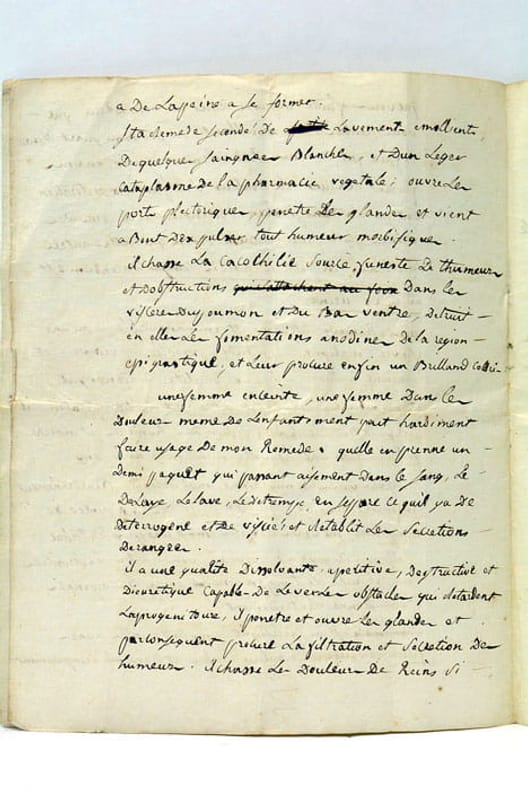 a De La peine a se former.
Lavement emollient,
De quelque saingnee Blanche, et Dun Leger
Cataplasme De la pharmacie vegetale; ouvre Les
ports plectoriques, penetre Les glandes et vient
a Bout Dex pulser tout humeur morbifique.
il chasse La Cacolhilie source funeste De thumeurs
et Dobstructions qui s'attachent au foix Dans les
visseres Du poumon et Du Bas ventre, Detruit
en elles Les fomentations anodines de la region
epi gastrique, et Leur procure enfin un Brilland
une femme enceinte, une femme Dans les
Douleur meme De Lenfantement peut hardiment
faire usage De mon Remede. quelle en prenne un
Demi paquet qui passant aisement dans le sang, Le
Delaye, Le lave, Le detrempe, en separe ce quil ya De
Heterrogene et De vissié et Retablit Les Secretions
Derangees.
il a une qualité Dissolvante aperitive, Destructive et
Diouretique Capable De Lever Les obstacles qui retardent
La progeniture, il penetre et ouvre Les glandes et
par consequent procure La filtration et Secretion Des
humeurs. il chasse Les Douleurs De Reins si